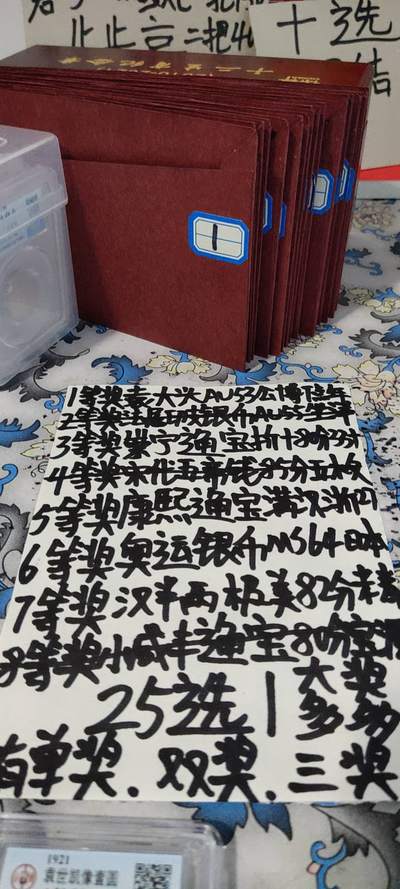 此言二把
十选
结
十二生肖纪念章
1
1等奖袁大头AU53公博
2等奖法属坐洋银币AU55坐洋
3等奖崇宁通宝折十80分
4等奖宋代五帝钱85分五枚
5等奖康熙通宝满汉浙
6等奖奥运银币MS64日本
7等奖汉半两极美82分
8等奖小咸丰通宝80分宝
25选1大奖
多多
有单奖.双奖.三奖
1921
袁世凯像壹圆